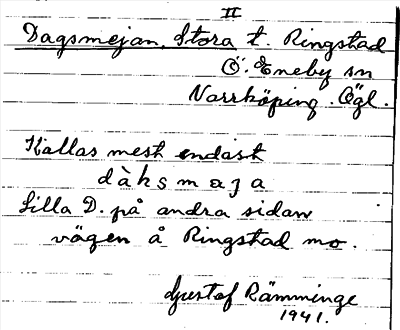 II
Dagsmejan, Stora t. Ringstad
Ö. Eneby sn
Norrköping. Ögl.
Kallas mest endast
dàksmaja
Lilla D. på andra sidan
vägen å Ringstad mo.
Gustaf Rämminge
1941.